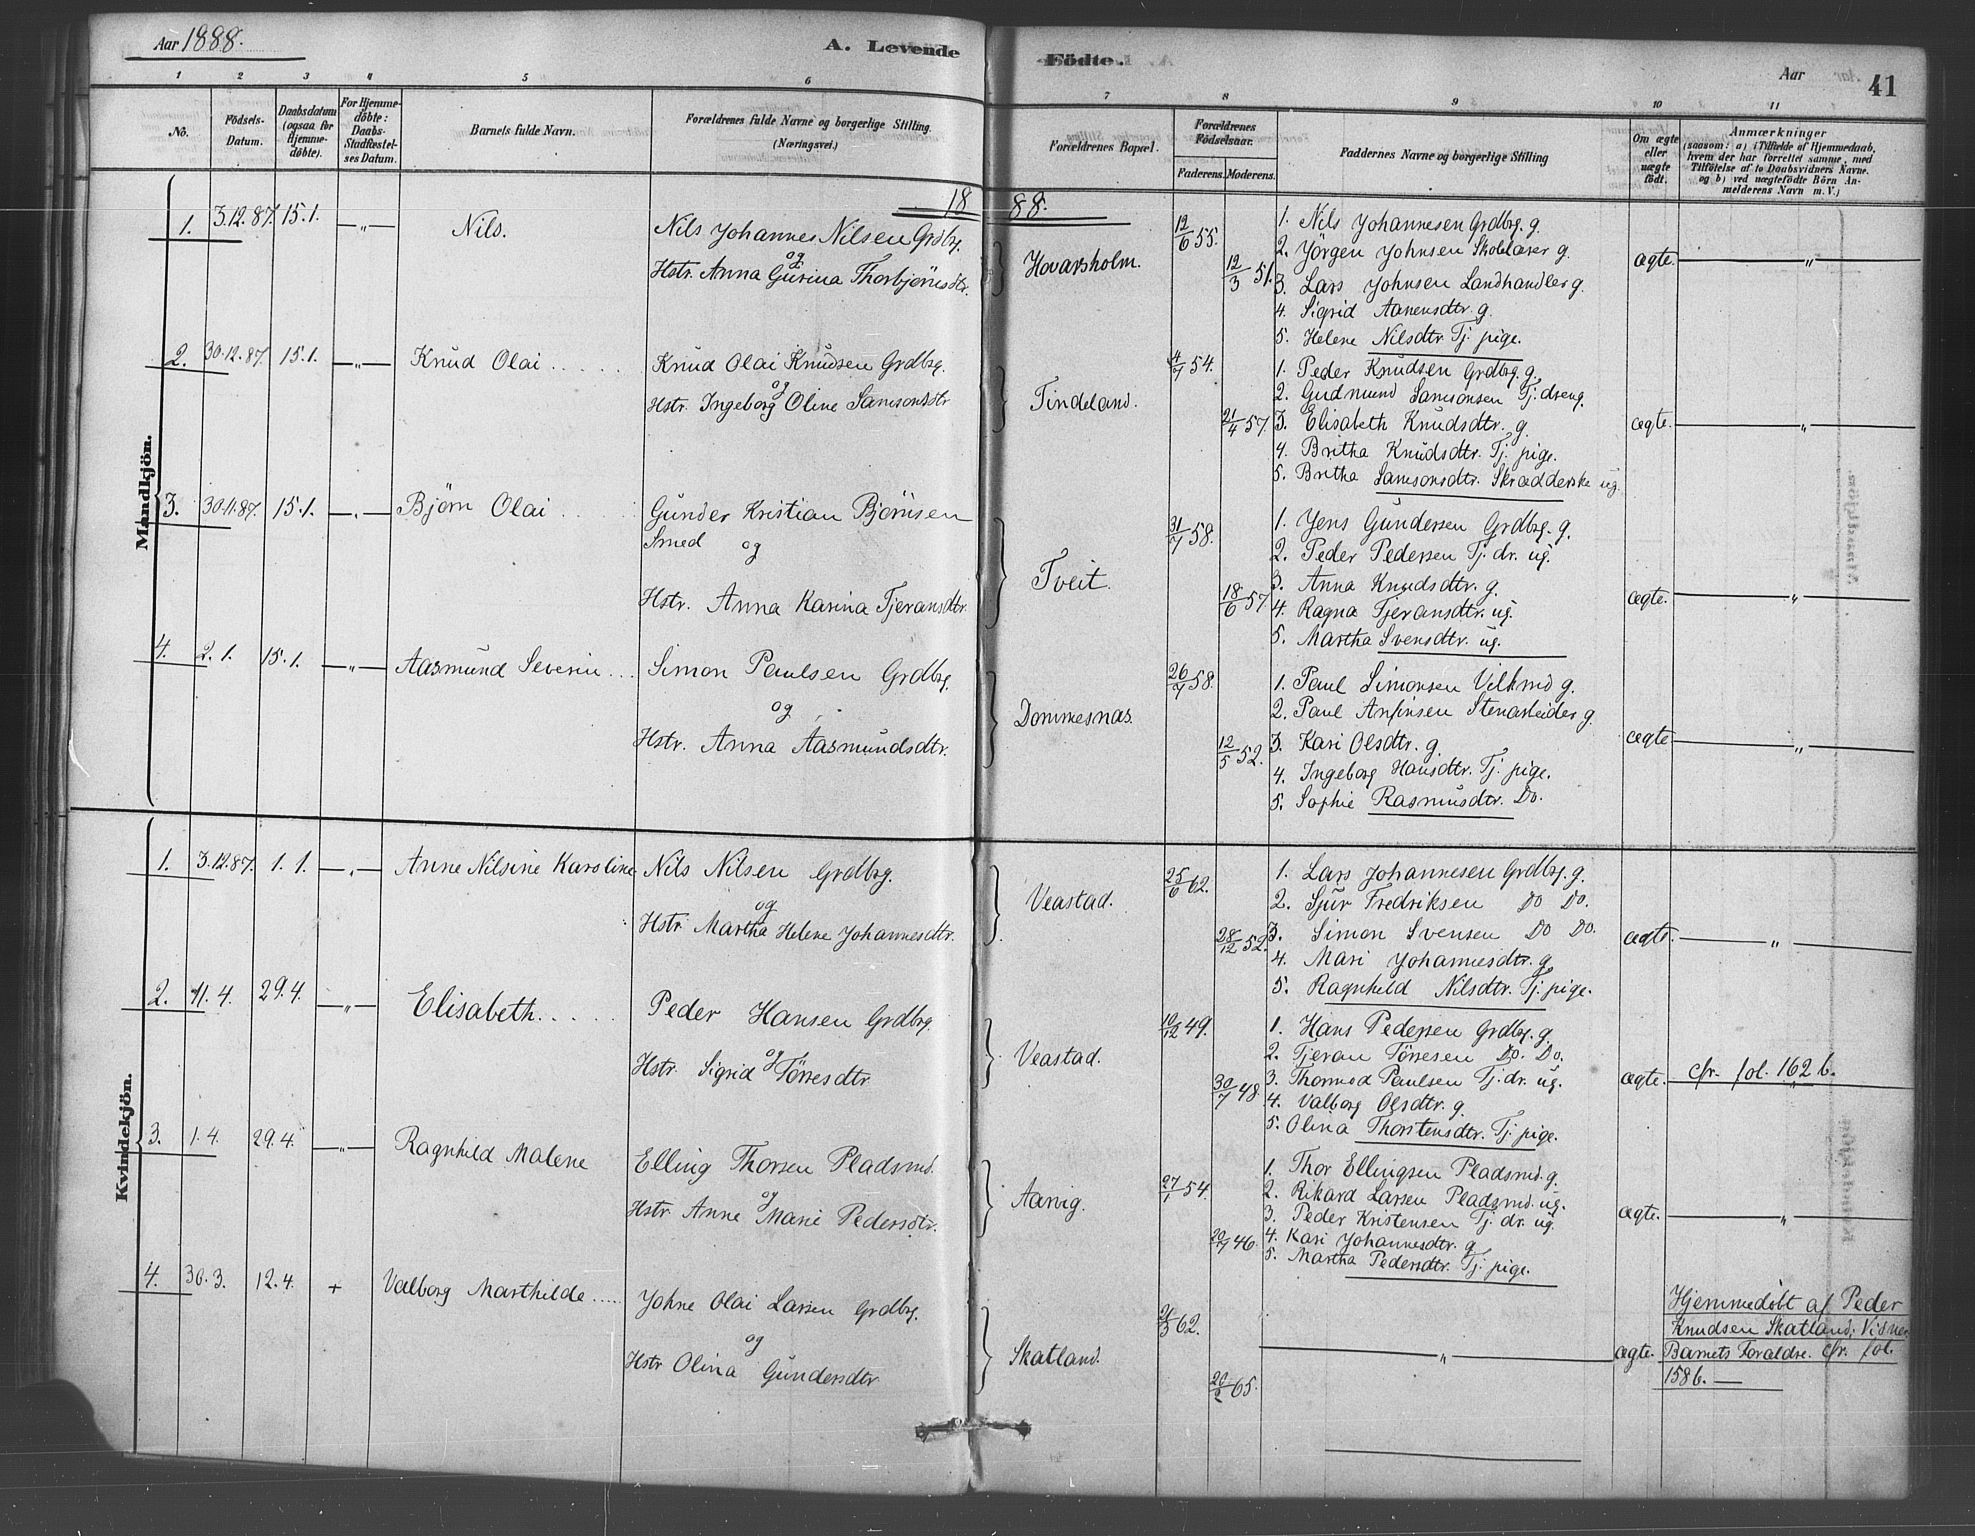 Aar 1888. A. Levende Födte. Aar 41
1 2 3 4 5 6 7 8 9 10 11
No.
Födsels-Datum.
Daabsdatum (ogsaa for Hjemme-döbte).
For Hjemme-döbte: Daabs-Stadfæstel-ses Datum.
Barnets fulde Navn.
Forældrenes fulde Navne og borgerlige Stilling. (Næringsvei.)
Forældrenes Bopæl.
Forældrenes Födselsaar.
Faderens. Moderens.
Faddernes Navne og borgerlige Stilling
Om ægte eller uægte födt.
Anmærkninger
(saasom: a) i Tilfælde af Hjemmedaab,
hvem der har forrettet samme, med
Tilföielse af to Daabsvidners Navne.
og b) ved uægtefödte Börn An-
melderens Navn m. V.)
1888.
Mandkjön.
1. 3.12.87. 15.1. —„— Nils.
Nils Johannes Nilsen Grdbrg.
og
Hstr. Anna Gurina Thorbjörnsdtr.
Hovarsholm.
12/6 55.
12/3 51.
1. Nils Johannesen Grdbrg. g.
2. Jörgen Johnsen Skolelærer g.
3. Lars Johnsen Landhandler g.
4. Sigrid Aanensdtr. g.
5. Helene Nilsdtr. Tj. pige.
ægte. —„—
2. 30.12.87. 15.1. —„— Knud Olai
Knud Olai Knudsen Grdbrg.
og
Hstr. Ingeborg Oline Samsonsdtr
Tindeland.
4/7 54.
21/4 57
1. Peder Knudsen Grdbrg. g.
2. Gudmund Samsonsen Tj. dreng.
3. Elisabeth Knudsdtr. g.
4. Britha Knudsdtr. Tj. pige.
5. Britha Samsonsdtr. Skrædderske ug.
ægte. —„—
3. 30.11.87. 15.1. —„— Björn Olai
Gunder Kristian Björnsen
Smed og
Hstr. Anna Karina Tjeransdtr.
Tveit.
31/7 58.
18/6 57
1. Jens Gundersen Grdbrg. g.
2. Peder Pedersen Tj. dr. ug.
3. Anna Knudsdtr. g.
4. Ragna Tjeransdtr. ug.
5. Martha Svensdtr. ug.
ægte. —„—
4. 2.1. 15.1. —„— Aasmund Severin
Simon Paulsen Grdbrg.
og
Hstr. Anna Aasmundsdtr.
Dommesnæs.
26/7 58.
12/5 52.
1. Paul Simonsen Vilkmd g.
2. Paul Anfinsen Stenarbeider g.
3. Kari Olsdtr. g.
4. Ingeborg Hansdtr. Tj. pige.
5. Sophie Rasmusdtr. Do.
ægte —„—
Kvindekjön.
1. 3.12.87. 1.1. —„— Anne Nilsine Karoline
Nils Nilsen Grdbrg.
og
Hstr. Martha Helene Johannesdtr.
Veastad.
25/6 62.
28/12 52.
1. Lars Johannesen Grdbrg. g.
2. Sjur Fredriksen Do Do.
3. Simon Svensen Do Do.
4. Mari Johannesdtr. g.
5. Ragnhild Nilsdtr. Tj. pige.
ægte. —„—
2. 11.4. 29.4. —„— Elisabeth.
Peder Hansen Grdbrg.
og
Hstr. Sigrid Törresdtr.
Veastad.
10/12 49.
30/7 48.
1. Hans Pedersen Grdbrg. g.
2. Tjeran Törresen Do. Do.
3. Thormod Paulsen Tj. dr. ug.
4. Valborg Olsdtr. g.
5. Olina Thorstensdtr. Tj. pige.
ægte. cfr. fol. 162 b.
3. 1.4. 29.4. —„— Ragnhild Malene
Elling Thorsen Pladsmd.
og
Hstr. Anne Marie Pedersdtr.
Aarvig.
27/1 54.
46.
1. Thor Ellingsen Pladsmd. g.
2. Rikard Larsen Pladsmd. ug.
3. Peder Kristensen Tj. dr. ug.
4. Kari Johannesdtr. g
5. Martha Pedersdtr. Tj. pige.
ægte. —„—
4. 30.3. 12.4. + Valborg Marthilde
Johne Olai Larsen Grdbrg.
og
Hstr. Olina Gundersdtr.
Skatland.
62.
20/2 65.
—„—
ægte.
Hjemmedöbt af Peder
Knudsen Skatland; Vidner
Barnets Forældre. cfr. fol.
158 b. —